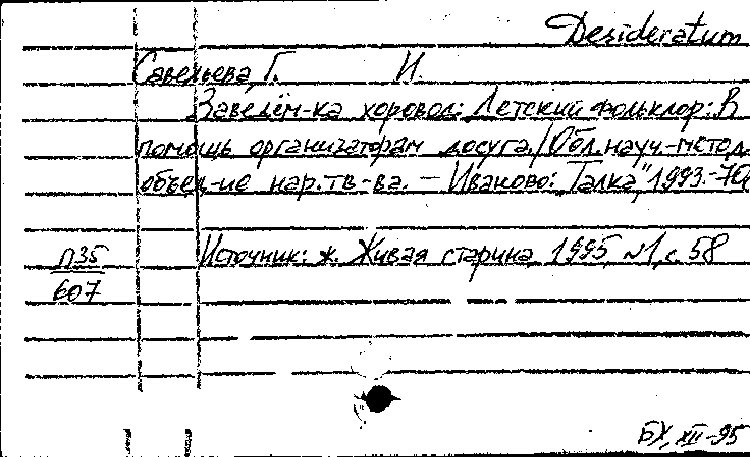 Desideratum
Савельева, Г. И.
Заведём-ка хоровод: Детский фольклор: В
помощь организаторам досуга. / Обл. науч.-метод.
объед-ие нар. тв-ва. – Иваново: "Талка", 1993.-70
П35
607
Источник: ж. Живая старина, 1995, №1, с. 58
БХ, XII-95